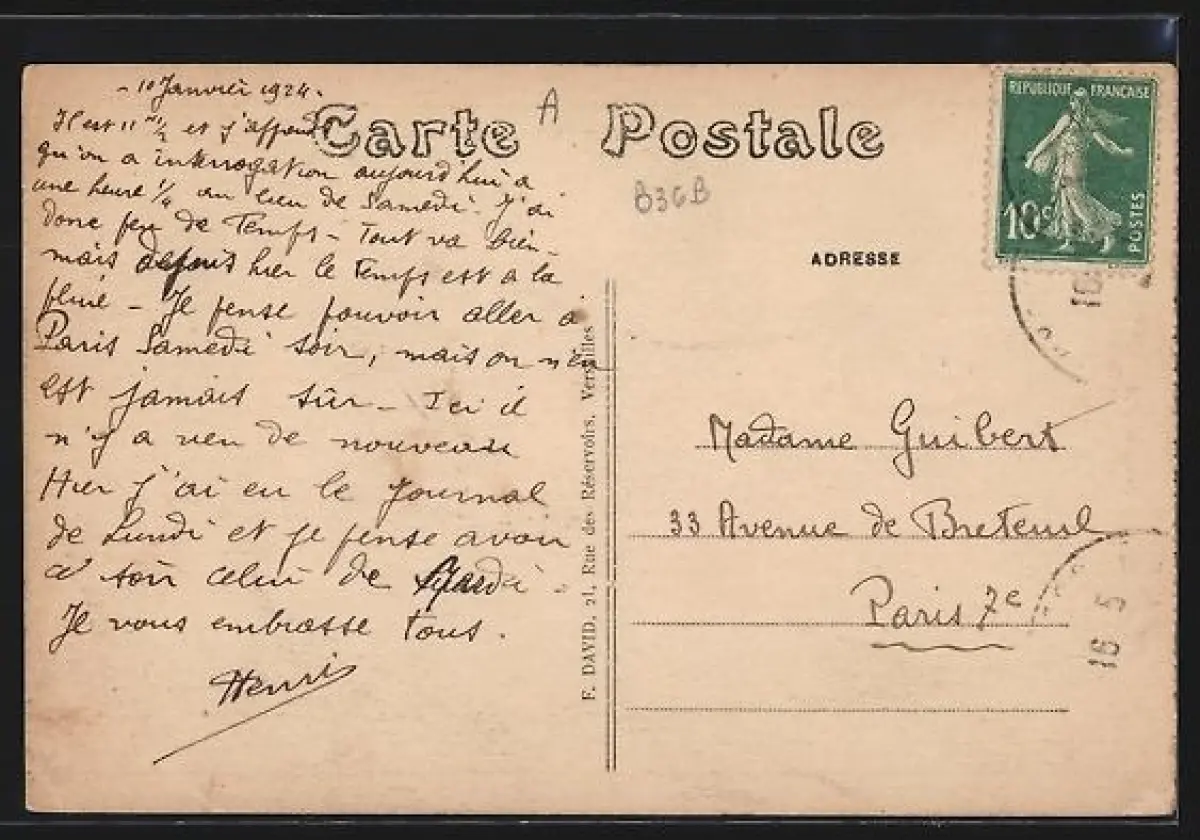 - 10 Janvier 1924.
Il est 11h 1/2 et j'apprends
qu'on a interrogation aujourd'hui à
une heure 1/4 au lieu de Samedi. J'ai
donc peu de Temps - Tout va bien -
mais depuis hier le Temps est à la
pluie - Je pense pouvoir aller à
Paris Samedi soir, mais on n'en
est jamais sûr - Ici il
n'y a rien de nouveau
Hier j'ai eu le journal
de Lundi et je pense avoir
ce soir celui de Mardi -
Je vous embrasse tous.
Henri
Carte Postale
A
B36B
ADRESSE
F. DAVID, 21, Rue des Réservoirs, Versailles
REPUBLIQUE FRANÇAISE
10c
POSTES
Madame Guibert
33 Avenue de Breteuil
Paris 7e
16 5